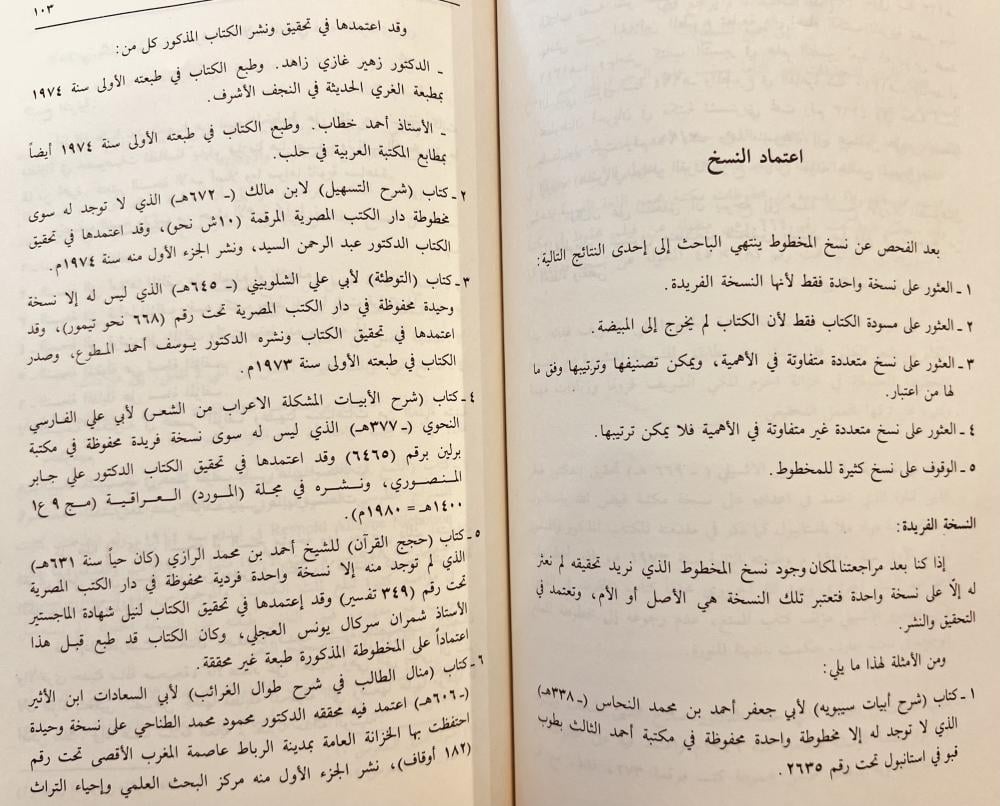 اعتماد النسخ
بعد الفحص عن نسخ المخطوط ينتهي الباحث إلى إحدى النتائج التالية:
١ ـ العثور على نسخة واحدة فقط لأنها النسخة الفريدة.
٢ ـ العثور على مسودة الكتاب فقط لأن الكتاب لم يخرج إلى المبيضة.
٣ ـ العثور على نسخ متعددة متفاوتة في الأهمية، ويمكن تصنيفها وترتيبها وفق ما
لها من اعتبار.
٤ ـ العثور على نسخ متعددة غير متفاوتة في الأهمية فلا يمكن ترتيبها.
٥ ـ الوقوف على نسخ كثيرة للمخطوط.
النسخة الفريدة:
إذا كنا بعد مراجعتنا لمكان وجود نسخ المخطوط الذي نريد تحقيقه لم نعثر
له إلّا على نسخة واحدة فتعتبر تلك النسخة هي الأصل أو الأم، وتعتمد في
التحقيق والنشر.
ومن الأمثلة لهذا ما يلي:
١ ـ كتاب (شرح أبيات سيبويه) لأبي جعفر أحمد بن محمد النحاس (ـ ٣٣٨هـ)
الذي لا توجد له إلا مخطوطة واحدة محفوظة في مكتبة أحمد الثالث بطوب
قبو في استانبول تحت رقم ٢٦٣٥.
١٠٣
وقد اعتمدها في تحقيق ونشر الكتاب المذكور كل من:
ـ الدكتور زهير غازي زاهد. وطبع الكتاب في طبعته الأولى سنة ١٩٧٤
بمطبعة الغري الحديثة في النجف الأشرف.
ـ الأستاذ أحمد خطاب. وطبع الكتاب في طبعته الأولى سنة ١٩٧٤ أيضاً
بمطابع المكتبة العربية في حلب.
٢ ـ كتاب (شرح التسهيل) لابن مالك (ـ ٦٧٢هـ) الذي لا توجد له سوى
مخطوطة دار الكتب المصرية المرقمة (١٠ش نحو)، وقد اعتمدها في تحقيق
الكتاب الدكتور عبد الرحمن السيد، ونشر الجزء الأول منه سنة ١٩٧٤م.
٣ ـ كتاب (التوطئة) لأبي علي الشلوبيني (ـ ٦٤٥هـ) الذي ليس له إلا نسخة
وحيدة محفوظة في دار الكتب المصرية تحت رقم (٦٦٨ نحو تيمور)، وقد
اعتمدها في تحقيق الكتاب ونشره الدكتور يوسف أحمد المطوع، وصدر
الكتاب في طبعته الأولى سنة ١٩٧٣م.
٤ ـ كتاب (شرح الأبيات المشكلة الاعراب من الشعر) لأبي علي الفارسي
النحوي (ـ ٣٧٧هـ) الذي ليس له سوى نسخة فريدة محفوظة في مكتبة
برلين برقم (٦٤٦٥) وقد اعتمدها في تحقيق الكتاب الدكتور علي جابر
المنصوري، ونشره في مجلة (المورد) العراقية (مج ٩ ع١
١٤٠٠هـ = ١٩٨٠م).
٥ ـ كتاب (حجج القرآن) للشيخ أحمد بن محمد الرازي (كان حياً سنة ٦٣١هـ)
الذي لم توجد منه إلا نسخة واحدة فردية محفوظة في دار الكتب المصرية
تحت رقم (٣٤٩ تفسير) وقد إعتمدها في تحقيق الكتاب لنيل شهادة الماجستير
الأستاذ شمران سركال يونس العجلي، وكان الكتاب قد طبع قبل هذا
اعتماداً على المخطوطة المذكورة طبعة غير محققة.
٦ ـ كتاب (منال الطالب في شرح طوال الغرائب) لأبي السعادات ابن الأثير
(ـ ٦٠٦هـ) اعتمد فيه محققه الدكتور محمود محمد الطناحي على نسخة وحيدة
احتفظت بها الخزانة العامة بمدينة الرباط عاصمة المغرب الأقصى تحت رقم
(١٨٢ أوقاف)، نشر الجزء الأول منه مركز البحث العلمي وإحياء التراث